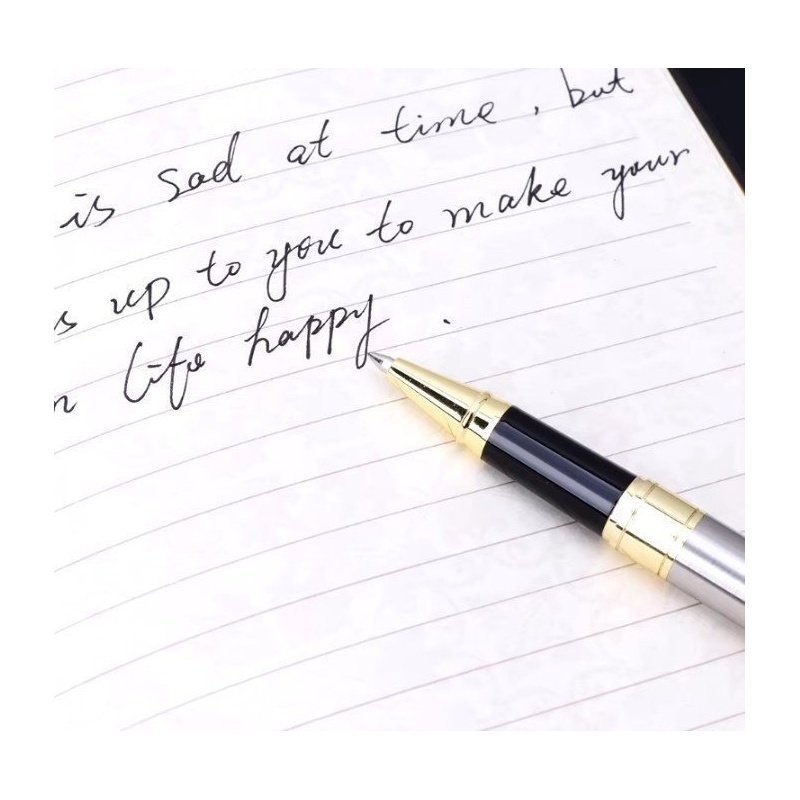 is sad at time, but
s up to you to make your
n life happy.